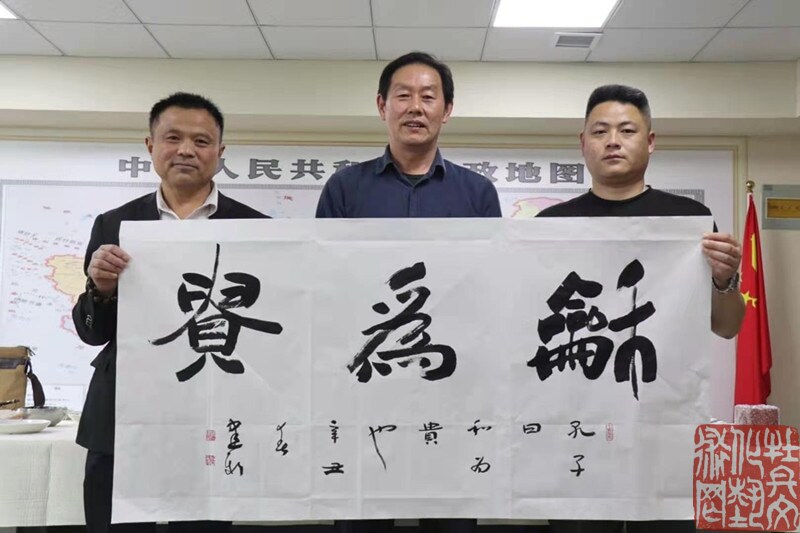 中 人民共和 政地图
龢為貴
孔子
曰
和为
貴
也
辛丑
春